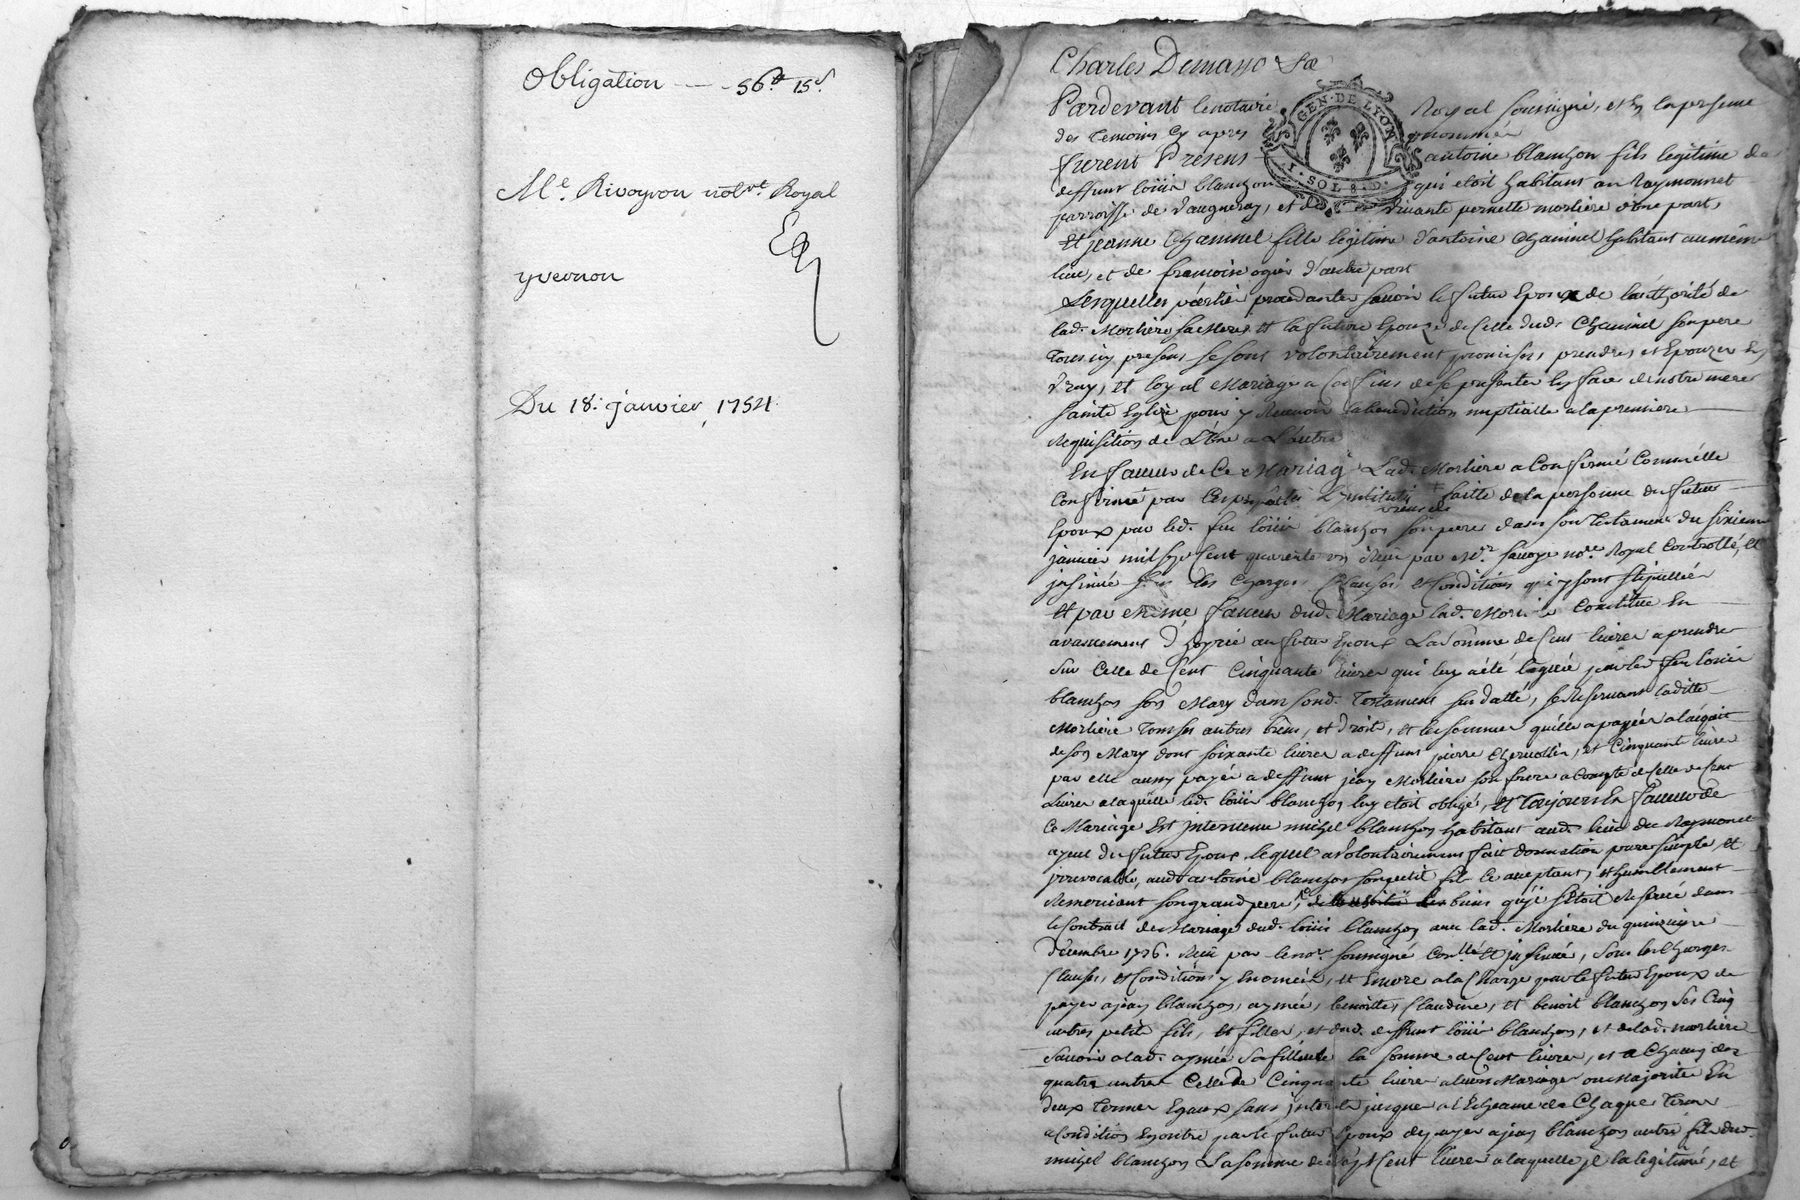 Obligation — 56ᵗᵗ 15ˢ
Mᵉ. Rivoyron notʳᵉ. Royal
yvernon
Du 18: janvier, 1754
Charles Demano
Pardevant le notaire Royal soussigné, et En la presence
des Temoins Cy apres nommés
GEN·DE LYON
I·SOL 8·D·
furent Presens antoine blanchon fils legitime de
deffunt loüis blanchon qui etoit habitant au Raymonnet
parroisse de Vaugneray, et de vivante pernette morliere d'une part,
Et jeanne Chaminel fille legitime d'antoine Chaminel habitant au mème
lieu, et de francoise ogier d'autre part
Lesquelles parties procedantes sçavoir le futur Epoux de l'authorité de
lad. Morliere sa Mere, et la future Epouze de Celle dud. Chaminel son pere
Tous icy presens se sont volontairement promises, prendre, et Epouzer En
vray, et loyal Mariage a Ces fins de se presenter En face de notre mere
sainte Eglize pour y Recevoir la benediction nuptialle a la premiere
Requisition de L'Une a L'autre
En faveur de Ce Mariage Lad. Morliere a Confirmé Comme elle
Confirme par Ces presentes L'institution faitte de la personne du futur
Epoux par led. feu loüis blanchon son pere dans son Testament du sixieme
janvier mil sept Cent quarente un Reçu par Mʳ savoye noʳᵉ Royal Controllé, Et
insinué sous les Charges Clauses, et Conditions qui y sont stipullées
Et par Même faveur dud. Mariage lad. Morliere Constitue En
avancement d'hoyrie au futur Epoux La somme de Cent livres a prendre
sur Celle de Cent Cinquante livres qui luy a été leguée par led. feu loüis
blanchon son Mary dans sond. Testament susdatté, se Reservant laditte
Morliere Tous ses autres biens, et droits, et les sommes qu'elle a payées a l'acquit
de son Mary dont soixante livres a deffunt pierre, et Cinquante livres
par elle aussy payée a deffunt jean Morliere son frere a Compte de Celle de Cent
Livres a laquelle led. loüis blanchon luy etoit obligé, Et Toujours En faveur de
Ce Mariage Est intervenu michel blanchon habitant aud. lieu du Raymonet
ayeul du futur Epoux lequel a volontairement fait donnation pure simple, et
irrevocable, aud. antoine blanchon son petit fils Ce acceptant, et humblement
Remerciant son grand pere, biens qu'il s'étoit Reservé dans
le Contrat de Mariage dud. loüis blanchon avec lad. Morliere du quinzieme
decembre 1726. Reçu par le noʳᵉ soussigné Conˡˡé Et insinué, sous les Charges
Clauses, et Conditions y Enoncées, et Encore a la Charge par le futur Epoux de
payer a jean blanchon, aymée, benoitte, Claudine, et benoit blanchon ses Cinq
autres petits fils, et filles, et dud. deffunt loüis blanchon, et de lad. morliere
sçavoir a lad. aymée sa filleule la somme de Cent livres, et a Chacun des
quatre autres Celle de Cinquante livres a leurs Mariage ou Majorité En
deux Termes Egaux sans interets jusques a l'Echeance de Chaque Terme
a Condition Enoutre par le futur Epoux de payer a jean blanchon autre fils dud.
michel blanchon La somme de Cent livres a laquelle il la legitimé, et